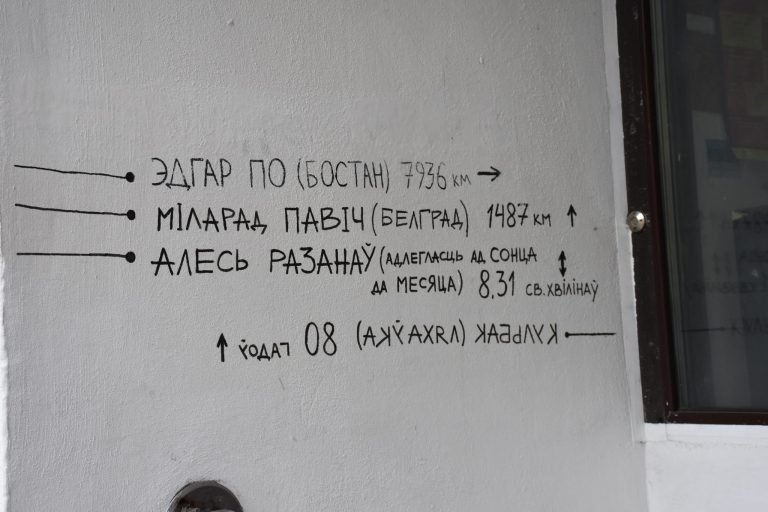 ЭДГАР ПО (БОСТАН) 7936 КМ →
МІЛАРАД ПАВІЧ (БЕЛГРАД) 1487 КМ ↑
АЛЕСЬ РАЗАНАЎ (АДЛЕГЛАСЦЬ АД СОНЦА ↕
ДА МЕСЯЦА) 8,31 СВ. ХВІЛІНАЎ
КУЛЬБАК (ЛЯХАЎКА) 80 ГАДОЎ ↑